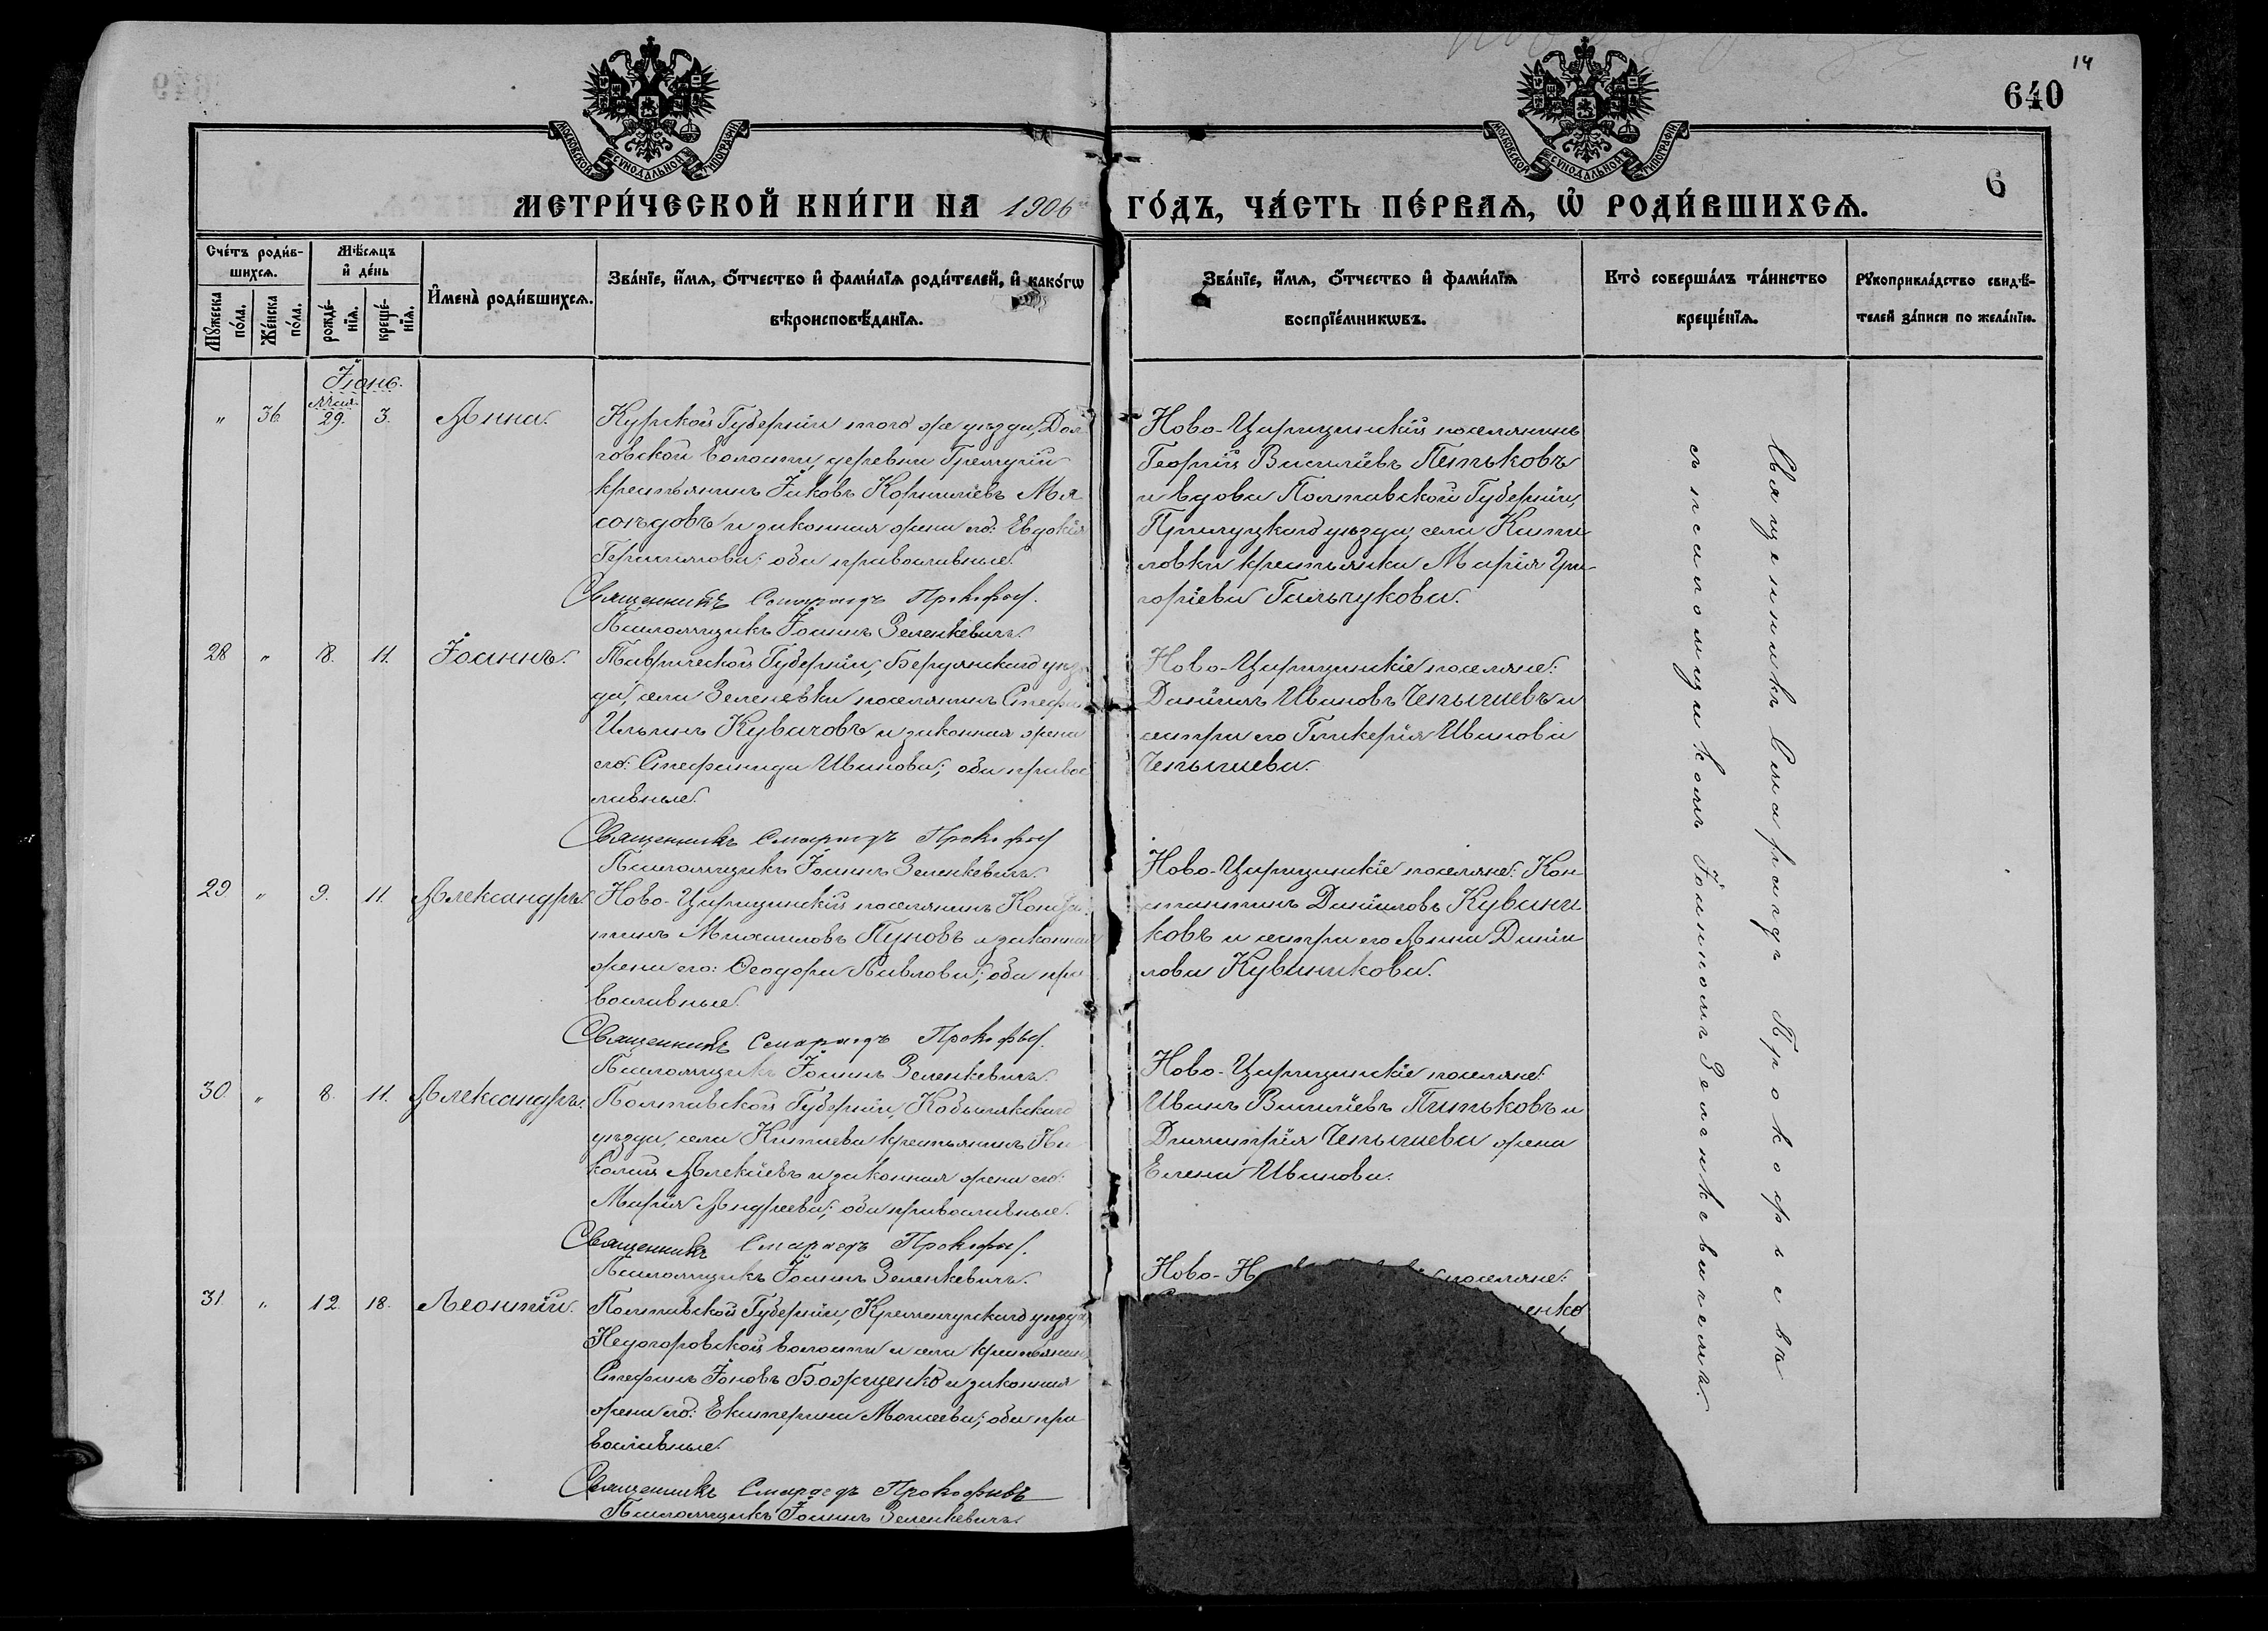 14
640
6
МОСКОВСКОЙ СѴНОДАЛЬНОЙ ТИПОГРАФІИ
МОСКОВСКОЙ СѴНОДАЛЬНОЙ ТИПОГРАФІИ
МЕТРИ́ЧЕСКОЙ КНИ́ГИ НА 1906 ГО́ДЪ, ЧА́СТЬ ПЕ́РВАѦ, Ѡ҆ РОДИ́ВШИХСѦ.
Сче́тъ роди́в-
шихсѧ.
Мѣ́сѧцъ
и҆ де́нь
Мꙋ́жеска
по́ла.
Же́нска
по́ла.
рожде́-
нїѧ.
креще́-
нїѧ.
И҆мена̀ роди́вшихсѧ.
Зва́нїе, и҆́мѧ, ѻ҆́тчество и҆ фами́лїѧ роди́телей, и҆ како́гѡ
вѣроисповѣ́данїѧ.
Зва́нїе, и҆́мѧ, ѻ҆́тчество и҆ фами́лїѧ
воспрїе́мникѡвъ.
Кто̀ соверша́лъ та́инство
креще́нїѧ.
Рꙋкоприкла́дство свидѣ́-
телей за́писи по жела́нїю.
Іюнь.
" 36. Мая 29. 3. Анна.
Курской Губерніи того же уѣзда, Дол-
говской волости, деревни Гремучій
крестьянинъ Іаковъ Корниліевъ Мя
соѣдовъ и законная жена его: Евдокія
Герасимова; оба православные.
Священникъ Смарагдъ Прокофьев.
Псаломщикъ Іоаннъ Зеленкевичъ.
Ново-Царицынскій поселянинъ
Георгій Василіевъ Петьковъ
и вдова Полтавской Губерніи,
Прилуцкаго уѣзда, села
крестьянка Марія Гри-
горіева Гальчукова.
28 " 8. 11. Іоаннъ.
Таврической Губерніи, Бердянскаго уѣз
да, села Зеленевки поселянинъ Стефан
Ильинъ Кувачовъ и законная жена
его: Стефанида Иванова; оба право
славные.
Священникъ Смарагдъ Прокофьев
Псаломщикъ Іоаннъ Зеленкевичъ.
Ново-Царицынскіе поселяне:
Даніилъ Ивановъ Чепышевъ и
сестра его Гликерія Иванова
Чепышева.
29 " 9. 11. Александръ.
Ново-Царицынскій поселянинъ
Михаиловъ Пуновъ и законная
жена его: Ѳеодора Павлова; оба пра
вославные.
Священникъ Смарагдъ Прокофьев.
Псаломщикъ Іоаннъ Зеленкевичъ.
Ново-Царицынскіе поселяне: Кон
стантинъ Даніиловъ Кувани
ковъ и сестра его Анна Даніи
лова Куваникова.
30. " 8. 11. Александръ.
Полтавской Губерніи, Кобелякскаго
уѣзда, села Китаева крестьянинъ Ни
колай Алексіевъ и законная жена его:
Марія Андреева; оба православные.
Священникъ Смарагдъ Прокофьев.
Псаломщикъ Іоаннъ Зеленкевичъ.
Ново-Царицынскіе поселяне:
Иванъ Василіевъ Питьковъ и
Димитрія Чепышева жена
Елена Иванова.
31. " 12. 18. Леонтій.
Полтавской Губерніи, Кременчугскаго уѣзда,
Недогоровской волости и села крестьянин
Стефанъ Іоновъ Боженко и законная
жена его: Екатерина Моисеева; оба пра
вославные.
Священникъ Смарагдъ Прокофьевъ
Псаломщикъ Іоаннъ Зеленкевичъ.
Ново-Н поселяне:
енко
Священникъ Смарагдъ Прокофьевъ
съ псаломщикомъ Іоанномъ Зеленкевичемъ.